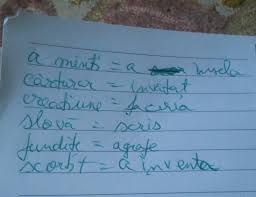 a minti = a înșela
cărturar = învățat
creațiune = facerea
slovă = scris
fundite = agrafe
scorbt = a inventa